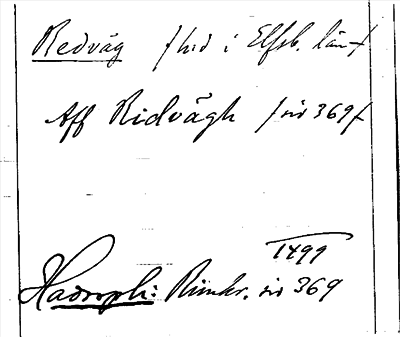 Redväg /hd i Elfsb. län/
Aff Ridvägh /sid 369/
1499
Hadorph: Rimkr. sid 369